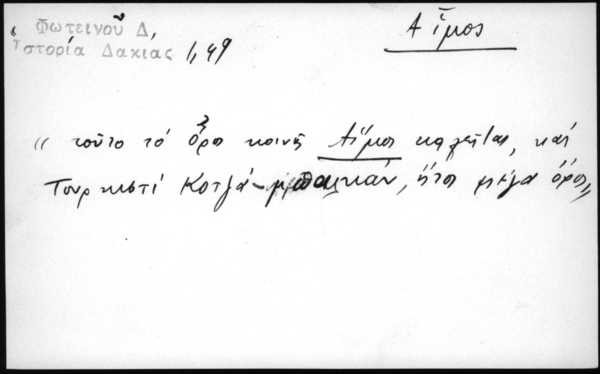 Φωτεινοῦ Δ,
Ἱστορία Δακιας 1,49
Αἵμος
"τοῦτο τό ὄρος κοινῶς Αἵμος καλεῖται, καί
Τουρκιστί Κοτζά-μπαλκάν, ἤτοι μέγα ὄρος"